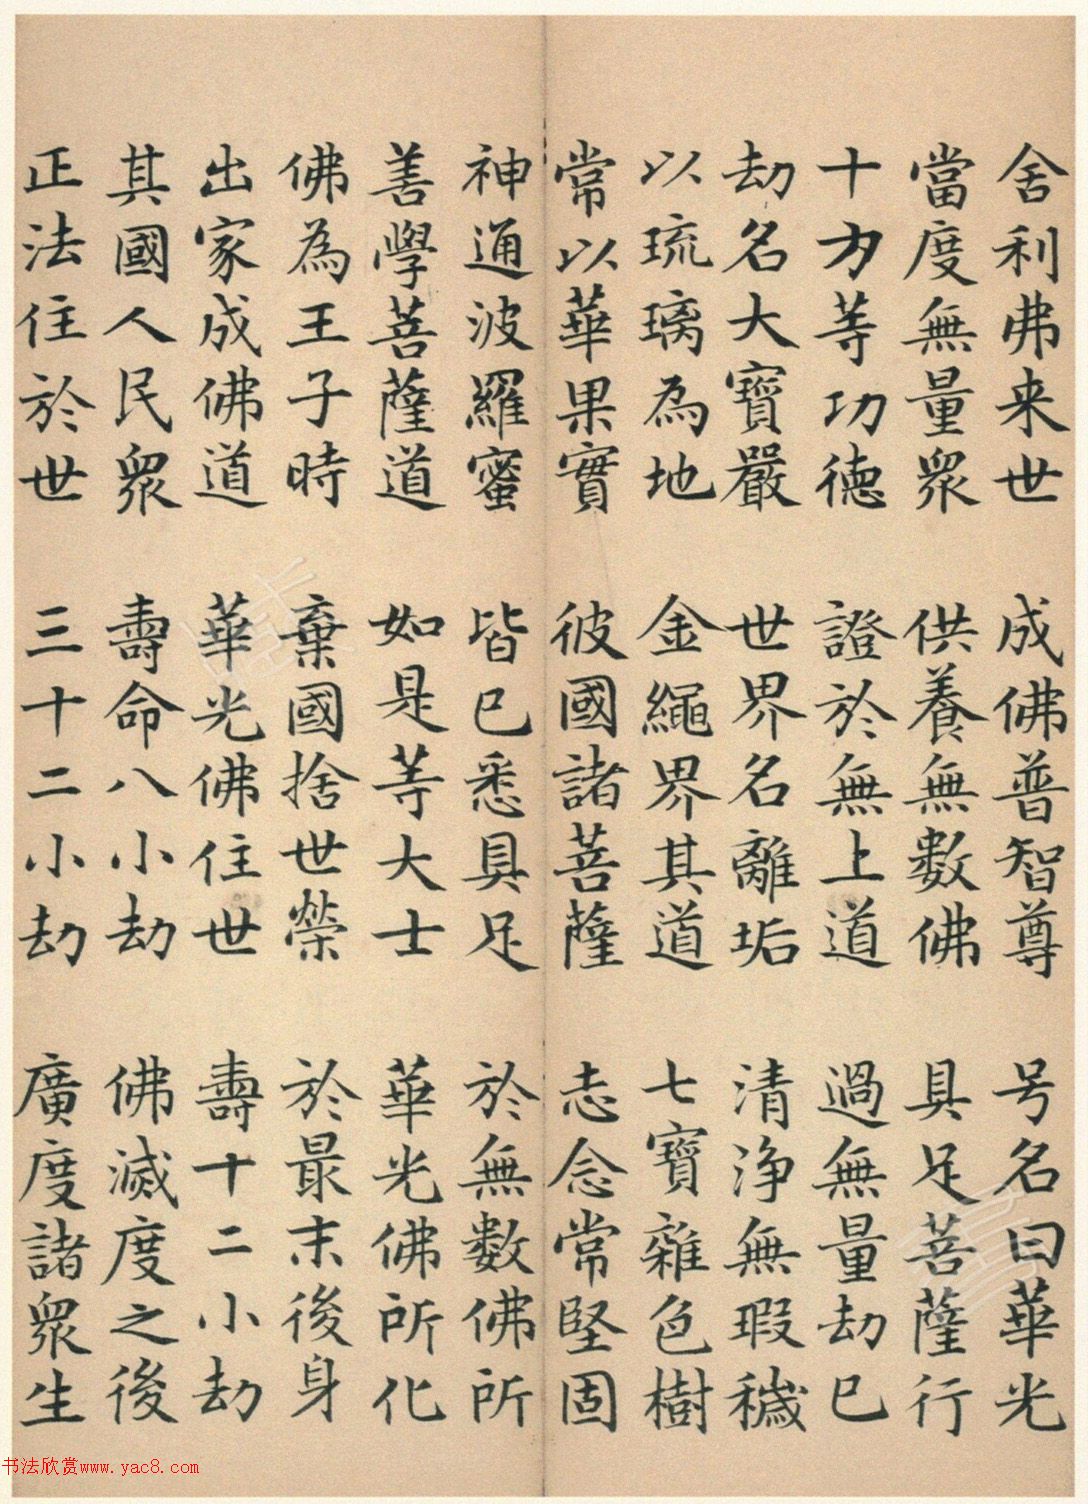 舍利弗来世 成佛普智尊 号名曰華光
當度無量眾 供養無數佛 具足菩薩行
十力等功德 證於無上道 過無量劫已
劫名大寶嚴 世界名離垢 清淨無瑕穢
以琉璃為地 金繩界其道 七寶雜色樹
常以華果實 彼國諸菩薩 志念常堅固
神通波羅蜜 皆已悉具足 於無數佛所
善學菩薩道 如是等大士 華光佛所化
佛為王子時 棄國捨世榮 於最末後身
出家成佛道 華光佛住世 壽十二小劫
其國人民眾 壽命八小劫 佛滅度之後
正法住於世 三十二小劫 廣度諸眾生
书法欣赏www.yac8.com